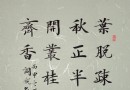 葉脱疎
秋正半
開叢桂
齊香